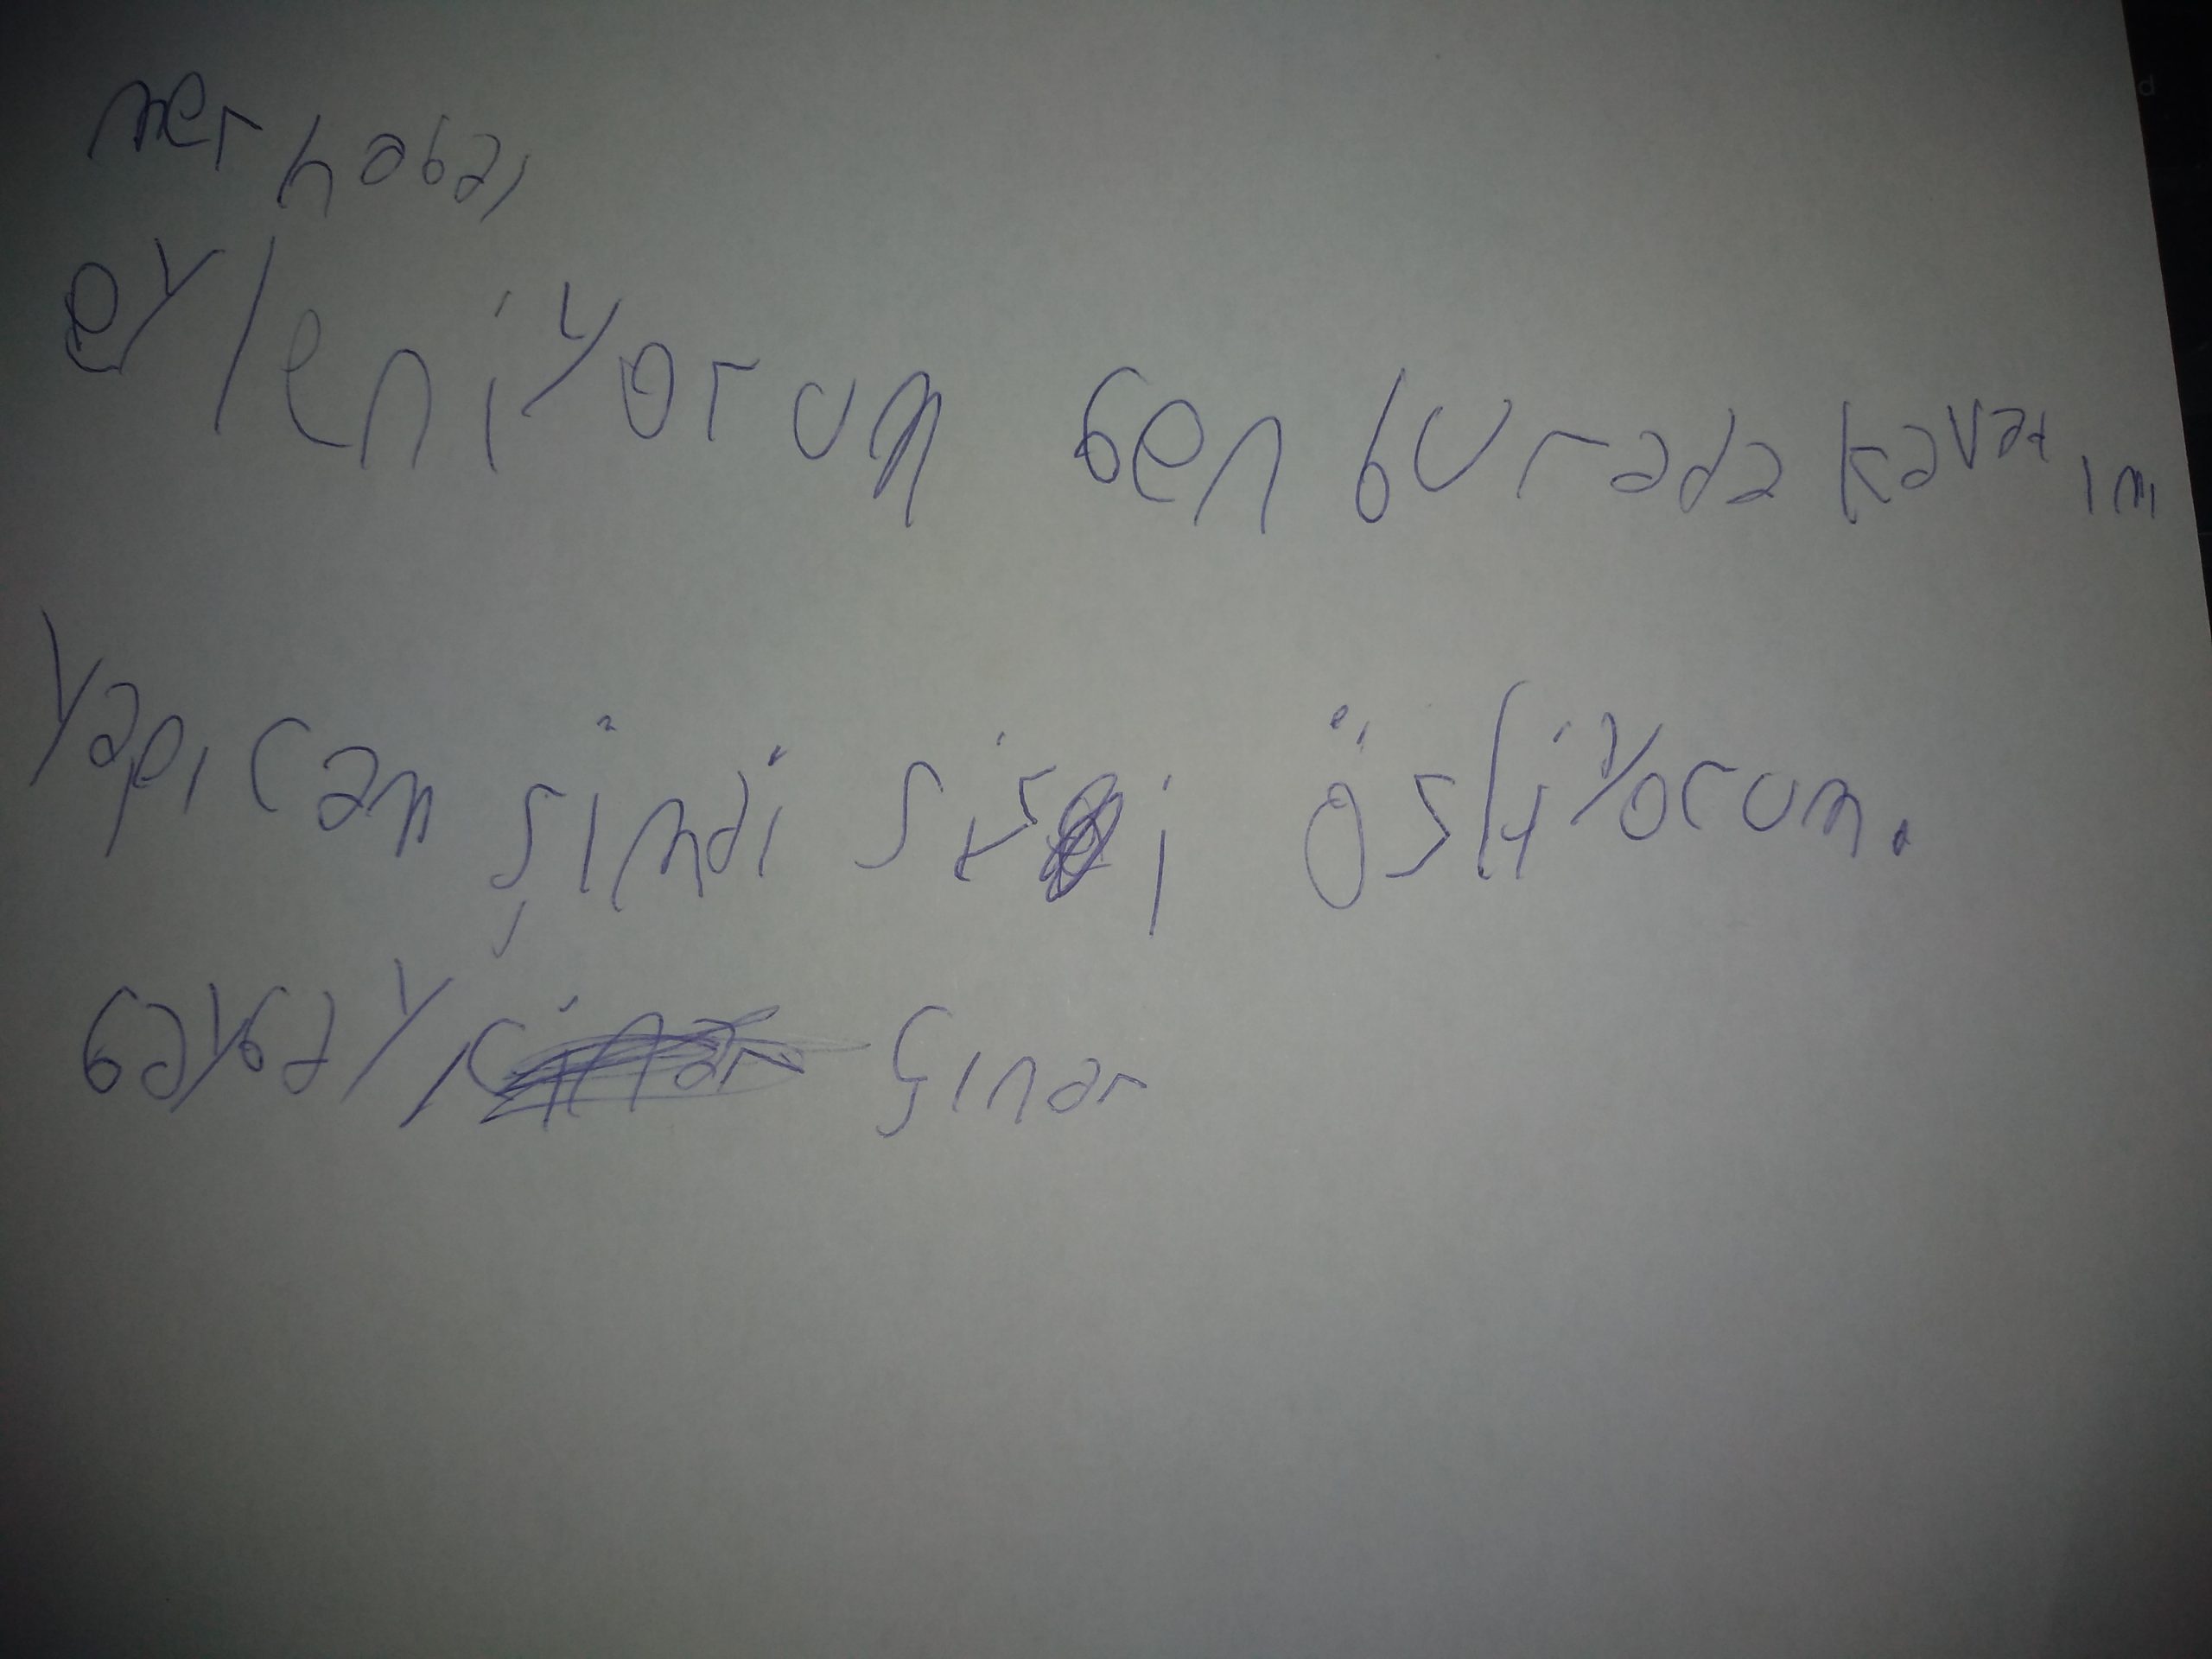 merhaba,
eyleniyorum ben burada kavatım
yapıcam şimdi sizi östliyorum.
baybay Çınar